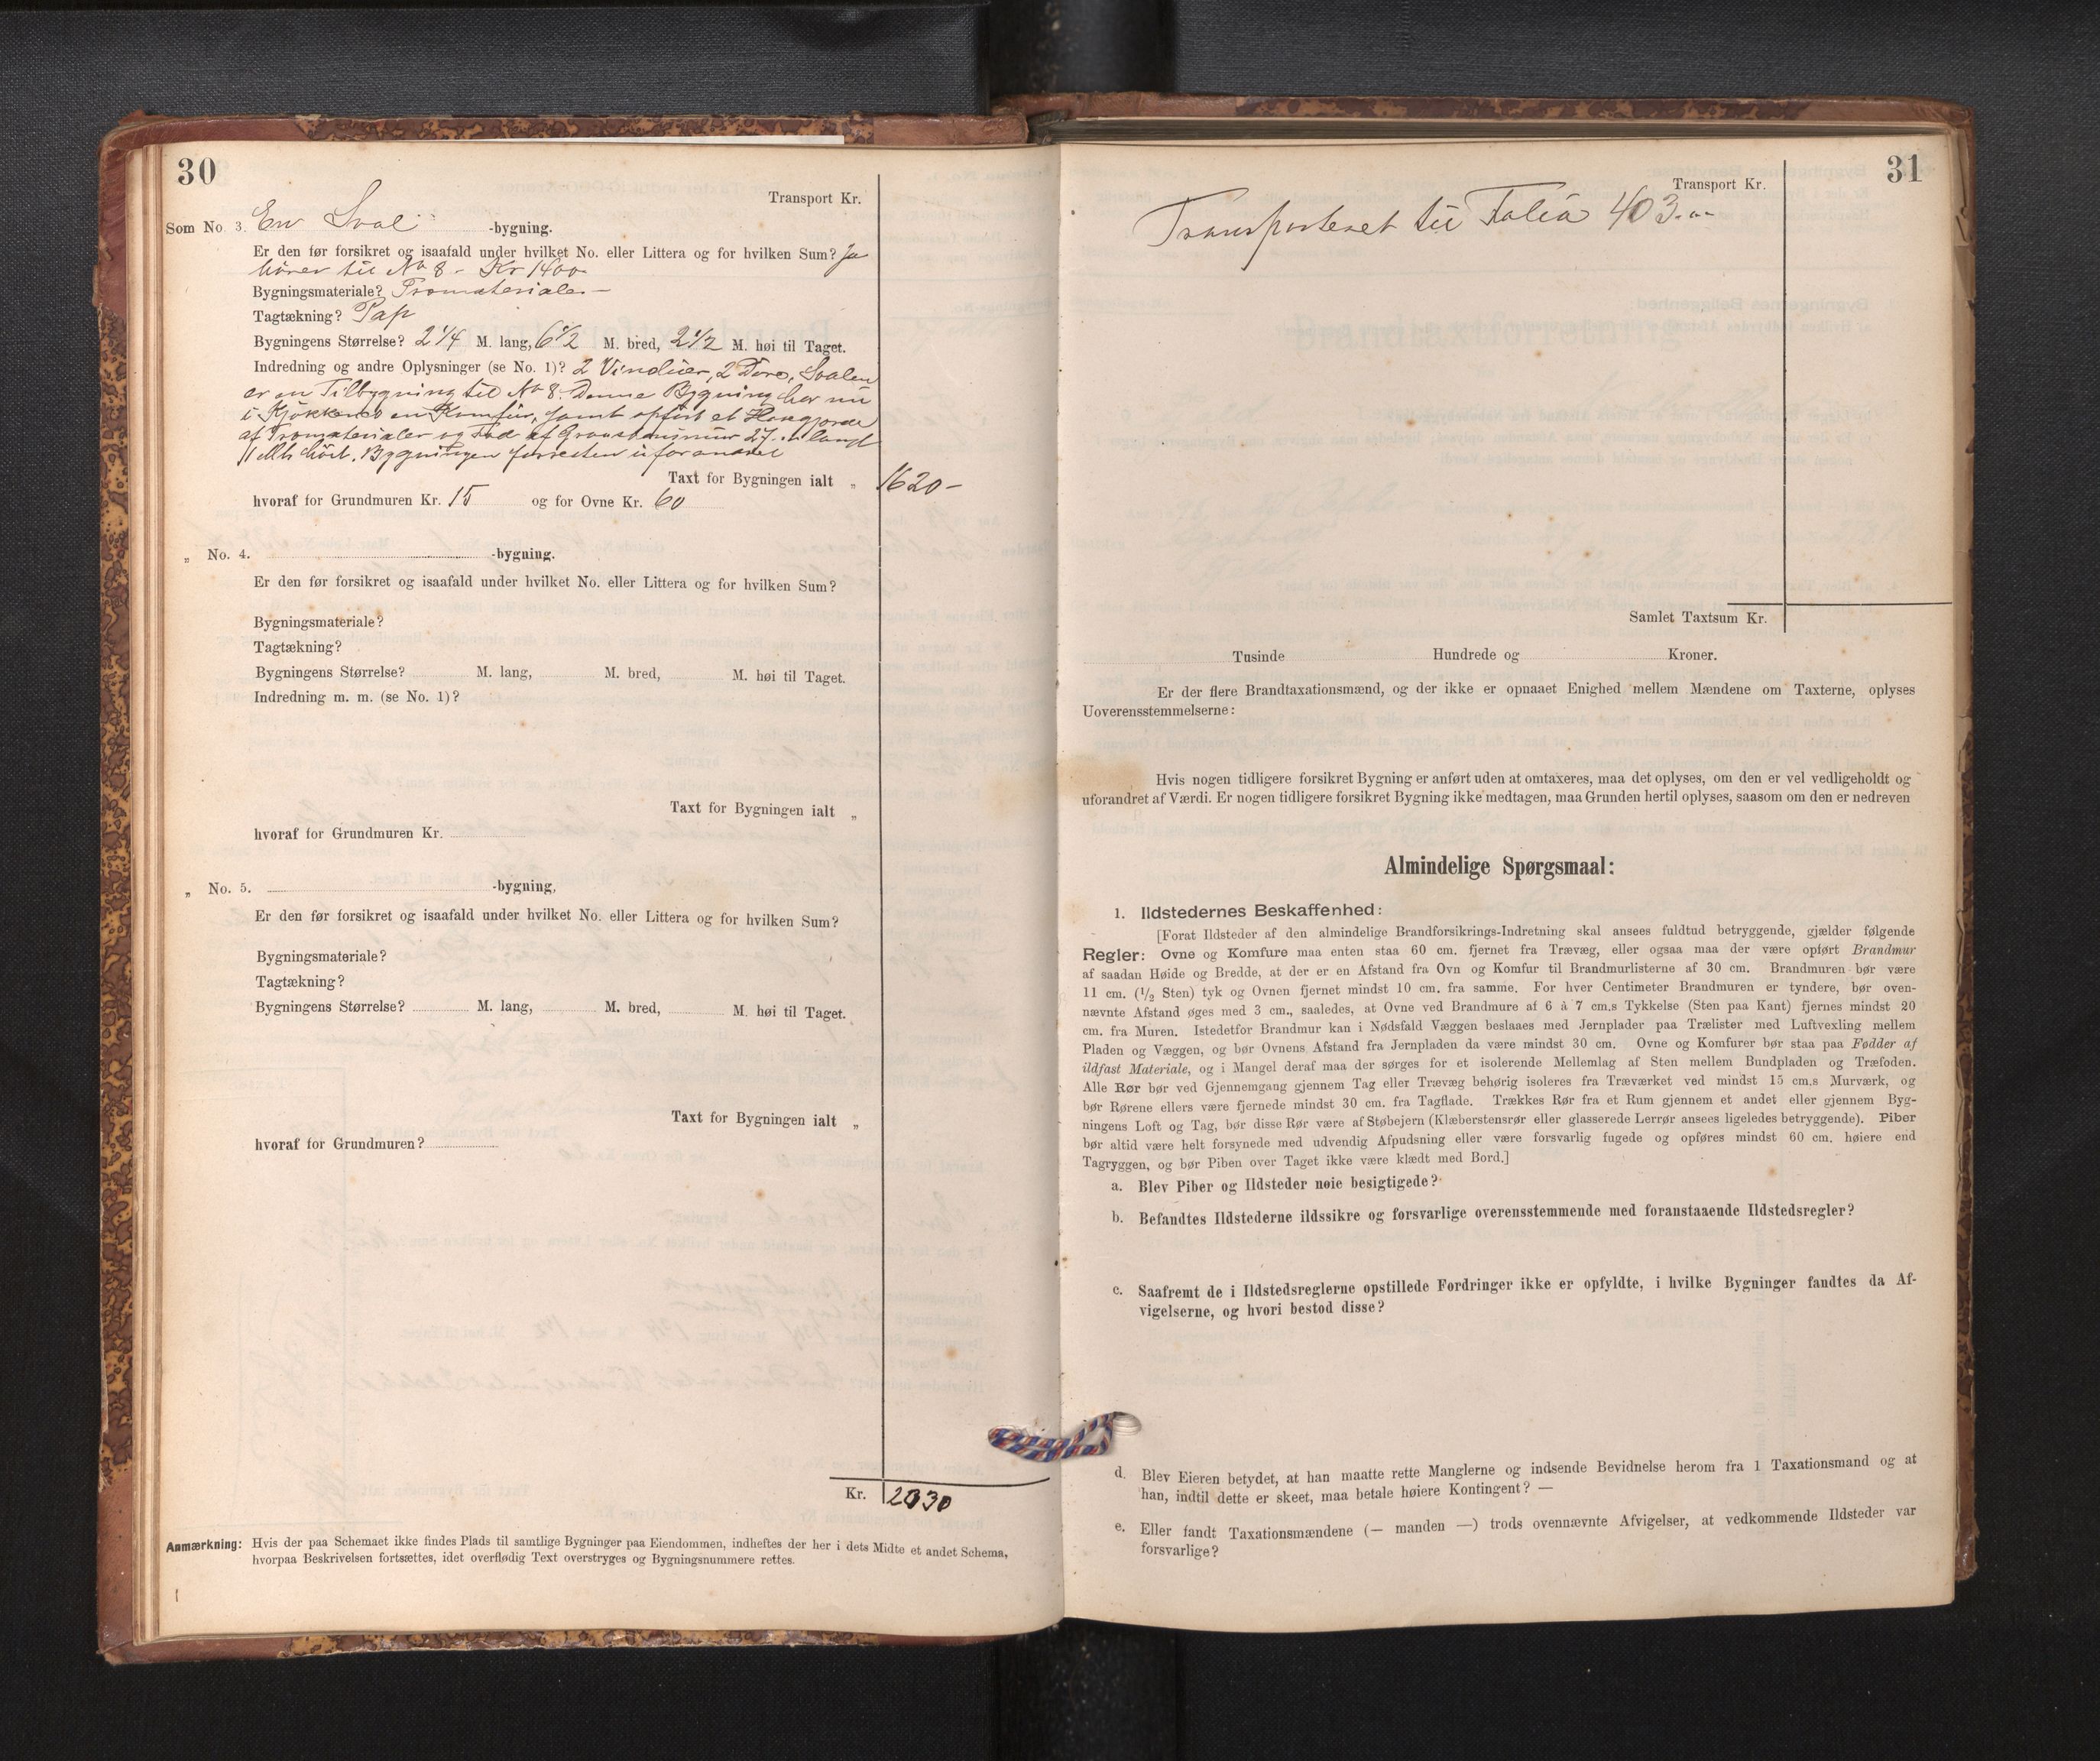 30
Transport Kr.
Som No. 3. En Sval -bygning.
Er den før forsikret og isaafald under hvilket No. eller Littera og for hvilken Sum? Ja
hører til No 8 - Kr 1400
Bygningsmateriale? Træmaterialer -
Tagtækning? Pap
Bygningens Størrelse? 2 1/4 M. lang, 6 1/2 M. bred, 2 1/2 M. høi til Taget.
Indredning og andre Oplysninger (se No. 1)? 2 Vinduer, 2 Døre, Svalen
er en Tilbygning til No 8. Denne Bygning har nu
i Kjøkkenet en Komfur, samt opført et
af Træmaterialer og Fod af 27 langt
høit. Bygningen forresten uforandret
Taxt for Bygningen ialt „ 1620 -
hvoraf for Grundmuren Kr. 15 og for Ovne Kr. 60
„ No. 4. -bygning.
Er den før forsikret og isaafald under hvilket No. eller Littera og for hvilken Sum?
Bygningsmateriale?
Tagtækning?
Bygningens Størrelse? M. lang, M. bred, M. høi til Taget.
Indredning m. m. (se No. 1)?
Taxt for Bygningen ialt „
hvoraf for Grundmuren Kr.
„ No. 5. -bygning,
Er den før forsikret og isaafald under hvilket No. eller Littera og for hvilken Sum?
Bygningsmateriale?
Tagtækning?
Bygningens Størrelse? M. lang, M. bred, M. høi til Taget.
Taxt for Bygningen ialt „
hvoraf for Grundmuren?
Kr. 2030
Anmærkning: Hvis der paa Schemaet ikke findes Plads til samtlige Bygninger paa Eiendommen, indheftes der her i dets Midte et andet Schema,
hvorpaa Beskrivelsen fortsættes, idet overflødig Text overstryges og Bygningsnummere rettes.
31
Transport Kr.
Transporteret til Folio 403.
Samlet Taxtsum Kr.
Tusinde Hundrede og Kroner.
Er der flere Brandtaxationsmænd, og der ikke er opnaaet Enighed mellem Mændene om Taxterne, oplyses
Uoverensstemmelserne:
Hvis nogen tidligere forsikret Bygning er anført uden at omtaxeres, maa det oplyses, om den er vel vedligeholdt og
uforandret af Værdi. Er nogen tidligere forsikret Bygning ikke medtagen, maa Grunden hertil oplyses, saasom om den er nedreven
Almindelige Spørgsmaal:
1. Ildstedernes Beskaffenhed:
[Forat Ildsteder af den almindelige Brandforsikrings-Indretning skal ansees fuldtud betryggende, gjælder følgende
Regler: Ovne og Komfure maa enten staa 60 cm. fjernet fra Trævæg, eller ogsaa maa der være opført Brandmur
af saadan Høide og Bredde, at der er en Afstand fra Ovn og Komfur til Brandmurlisterne af 30 cm. Brandmuren bør være
11 cm. (1/2 Sten) tyk og Ovnen fjernet mindst 10 cm. fra samme. For hver Centimeter Brandmuren er tyndere, bør oven-
nævnte Afstand øges med 3 cm., saaledes, at Ovne ved Brandmure af 6 à 7 cm.s Tykkelse (Sten paa Kant) fjernes mindst 20
cm. fra Muren. Istedetfor Brandmur kan i Nødsfald Væggen beslaaes med Jernplader paa Trælister med Luftvexling mellem
Pladen og Væggen, og bør Ovnens Afstand fra Jernpladen da være mindst 30 cm. Ovne og Komfurer bør staa paa Fødder af
ildfast Materiale, og i Mangel deraf maa der sørges for et isolerende Mellemlag af Sten mellem Bundpladen og Træfoden.
Alle Rør bør ved Gjennemgang gjennem Tag eller Trævæg behørig isoleres fra Træværket ved mindst 15 cm.s Murværk, og
bør Rørene ellers være fjernede mindst 30 cm. fra Tagflade. Trækkes Rør fra et Rum gjennem et andet eller gjennem Byg-
ningens Loft og Tag, bør disse Rør være af Støbejern (Klæberstensrør eller glasserede Lerrør ansees ligeledes betryggende). Piber
bør altid være helt forsynede med udvendig Afpudsning eller være forsvarlig fugede og opføres mindst 60 cm. høiere end
Tagryggen, og bør Piben over Taget ikke være klædt med Bord.]
a. Blev Piber og Ildsteder nøie besigtigede?
b. Befandtes Ildstederne ildssikre og forsvarlige overensstemmende med foranstaaende Ildstedsregler?
c. Saafremt de i Ildstedsreglerne opstillede Fordringer ikke er opfyldte, i hvilke Bygninger fandtes da Af-
vigelserne, og hvori bestod disse?
d. Blev Eieren betydet, at han maatte rette Manglerne og indsende Bevidnelse herom fra 1 Taxationsmand og at
han, indtil dette er skeet, maa betale høiere Kontingent? —
e. Eller fandt Taxationsmændene (— manden —) trods ovennævnte Afvigelser, at vedkommende Ildsteder var
forsvarlige?